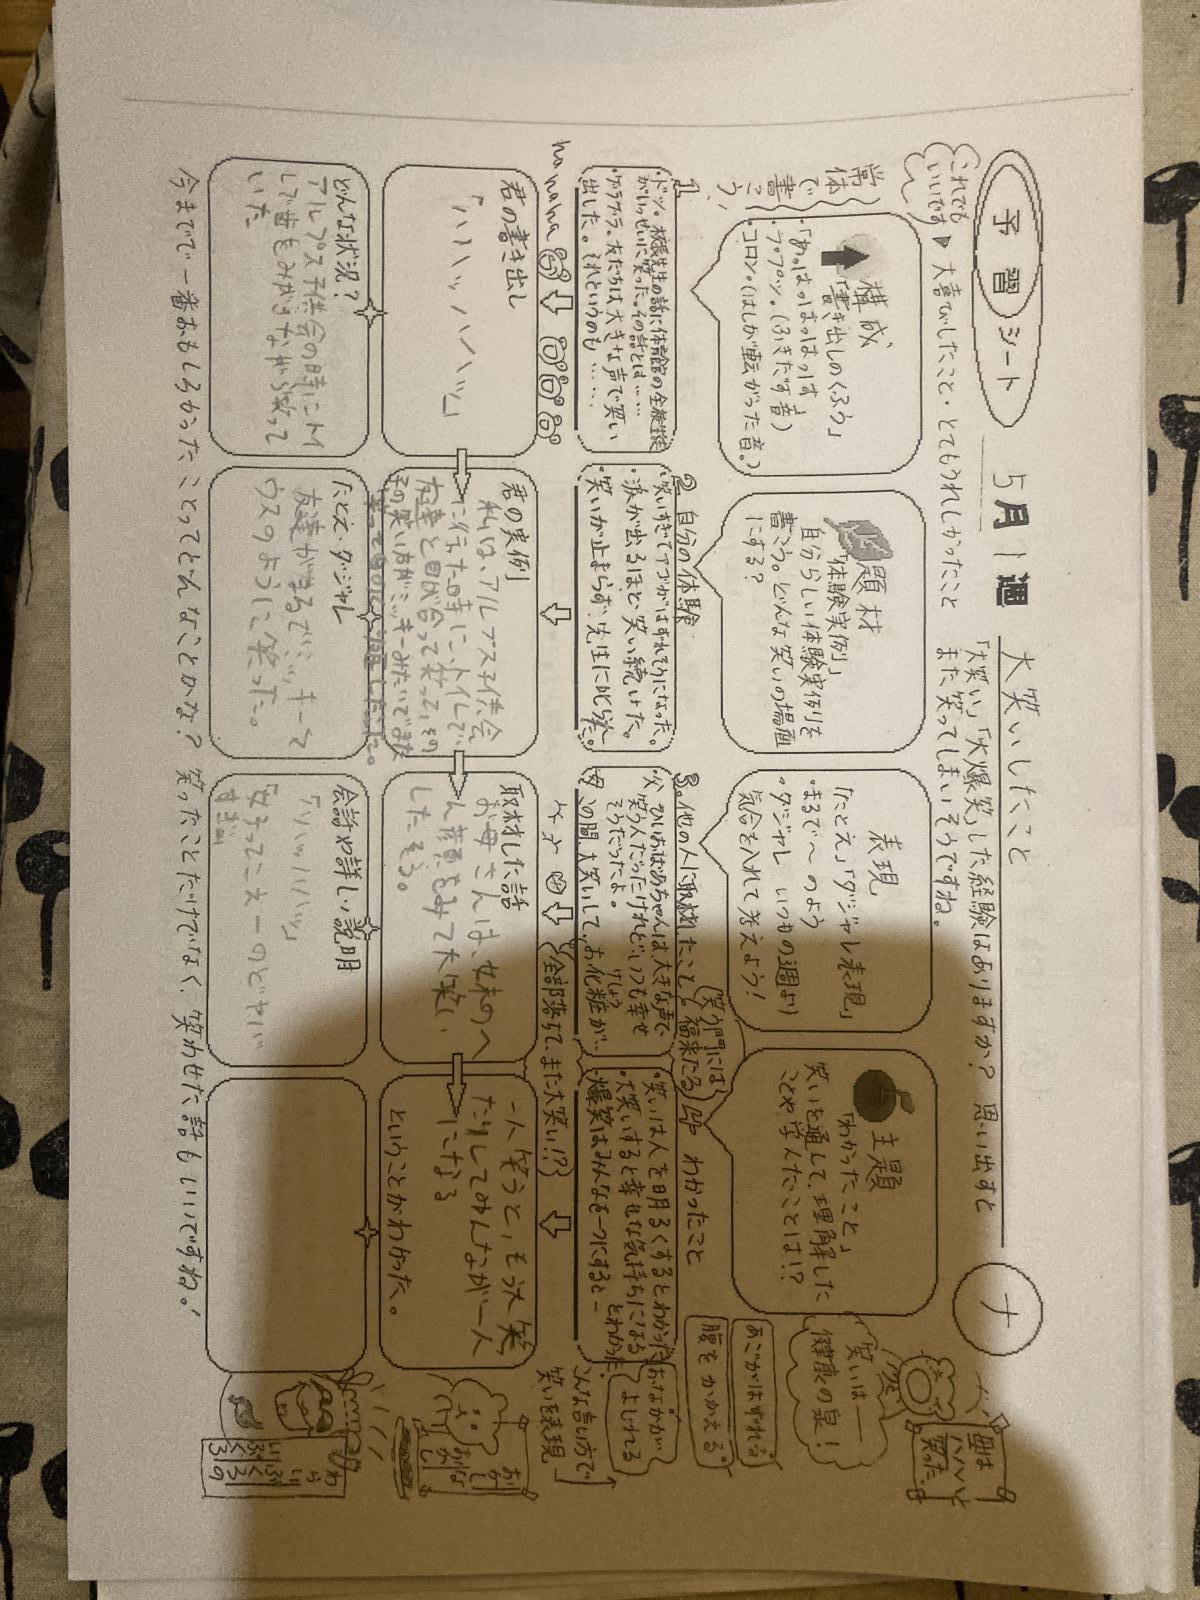 予習シート
5月1週
大笑いしたこと
ナ
「大笑い」「大爆笑」した経験はありますか？ 思い出すと
また笑ってしまいそうですね。
これでも
いいです
大喜びしたこと・とてもうれしかったこと
常体で書こう！
構成
「書き出しのくふう」
・「あっはっはっはっす」
・プププッ。(ふきだす音)
・コロン。(はしが転がった音。)
題材
「体験実例」
自分らしい体験実例を
書こう。どんな笑いの場面
にする？
表現
「たとえ」「ダジャレ表現」
・まるで〜のよう
・ダジャレ いつもの週より
気合を入れて考えよう！
主題
「わかったこと」
笑いを通して、理解した
ことや学んだことは!?
1.
・ドッ。校長先生の話に体育館の全校生徒
がいっせいに笑った。その話とは……
・ゲラゲラ。友だちは大きな声で笑い
出した。それというのも……
2 自分の体験
・笑いすぎてアゴがはずれそうになった。
・涙が出るほど笑い続けた。
・笑いが止まらず、先生に叱られた。
3.他の人に取材したこと
父 ひいおばあちゃんは大きな声で
笑う人だったけれど、いつも幸せ
そうだったよ。
母 この間、大笑いして、お化粧が…
けしょう
全部落ちて、また大笑い!?
笑う門には
福来たる
4 わかったこと
・笑いは人を明るくするとわかった
・大笑いすると幸せな気持ちになる
とわかった
・爆笑はみんなを一つにすると―
ha ha ha
君の書き出し
「ハハハッハハハッ」
君の実例
私は、アルプス子供会
に行った時に、トイレで、
友達と目が合って笑って、
その笑い方がミッキーみたいでまた
取材した話
お母さんは、妹のへ
ん顔をみて大笑い
したそう。
一人笑うと、もう大笑
たりしてみんなが一人
になる
ということがわかった。
どんな状況？
アルプス子供会の時にトイ
レで歯をみがきながら笑って
いた
たとえ・ダジャレ
友達がまるでミッキーマ
ウスのように笑った。
会話や詳しい説明
「ハハッハハハッ」
今までで一番おもしろかったことってどんなことかな？ 笑ったことだけでなく、笑わせた話もいいですね！
笑いは――
健康の泉！
あごがはずれる
腹をかかえる
おなかが
よじれる
こんな言い方で
笑いを表現